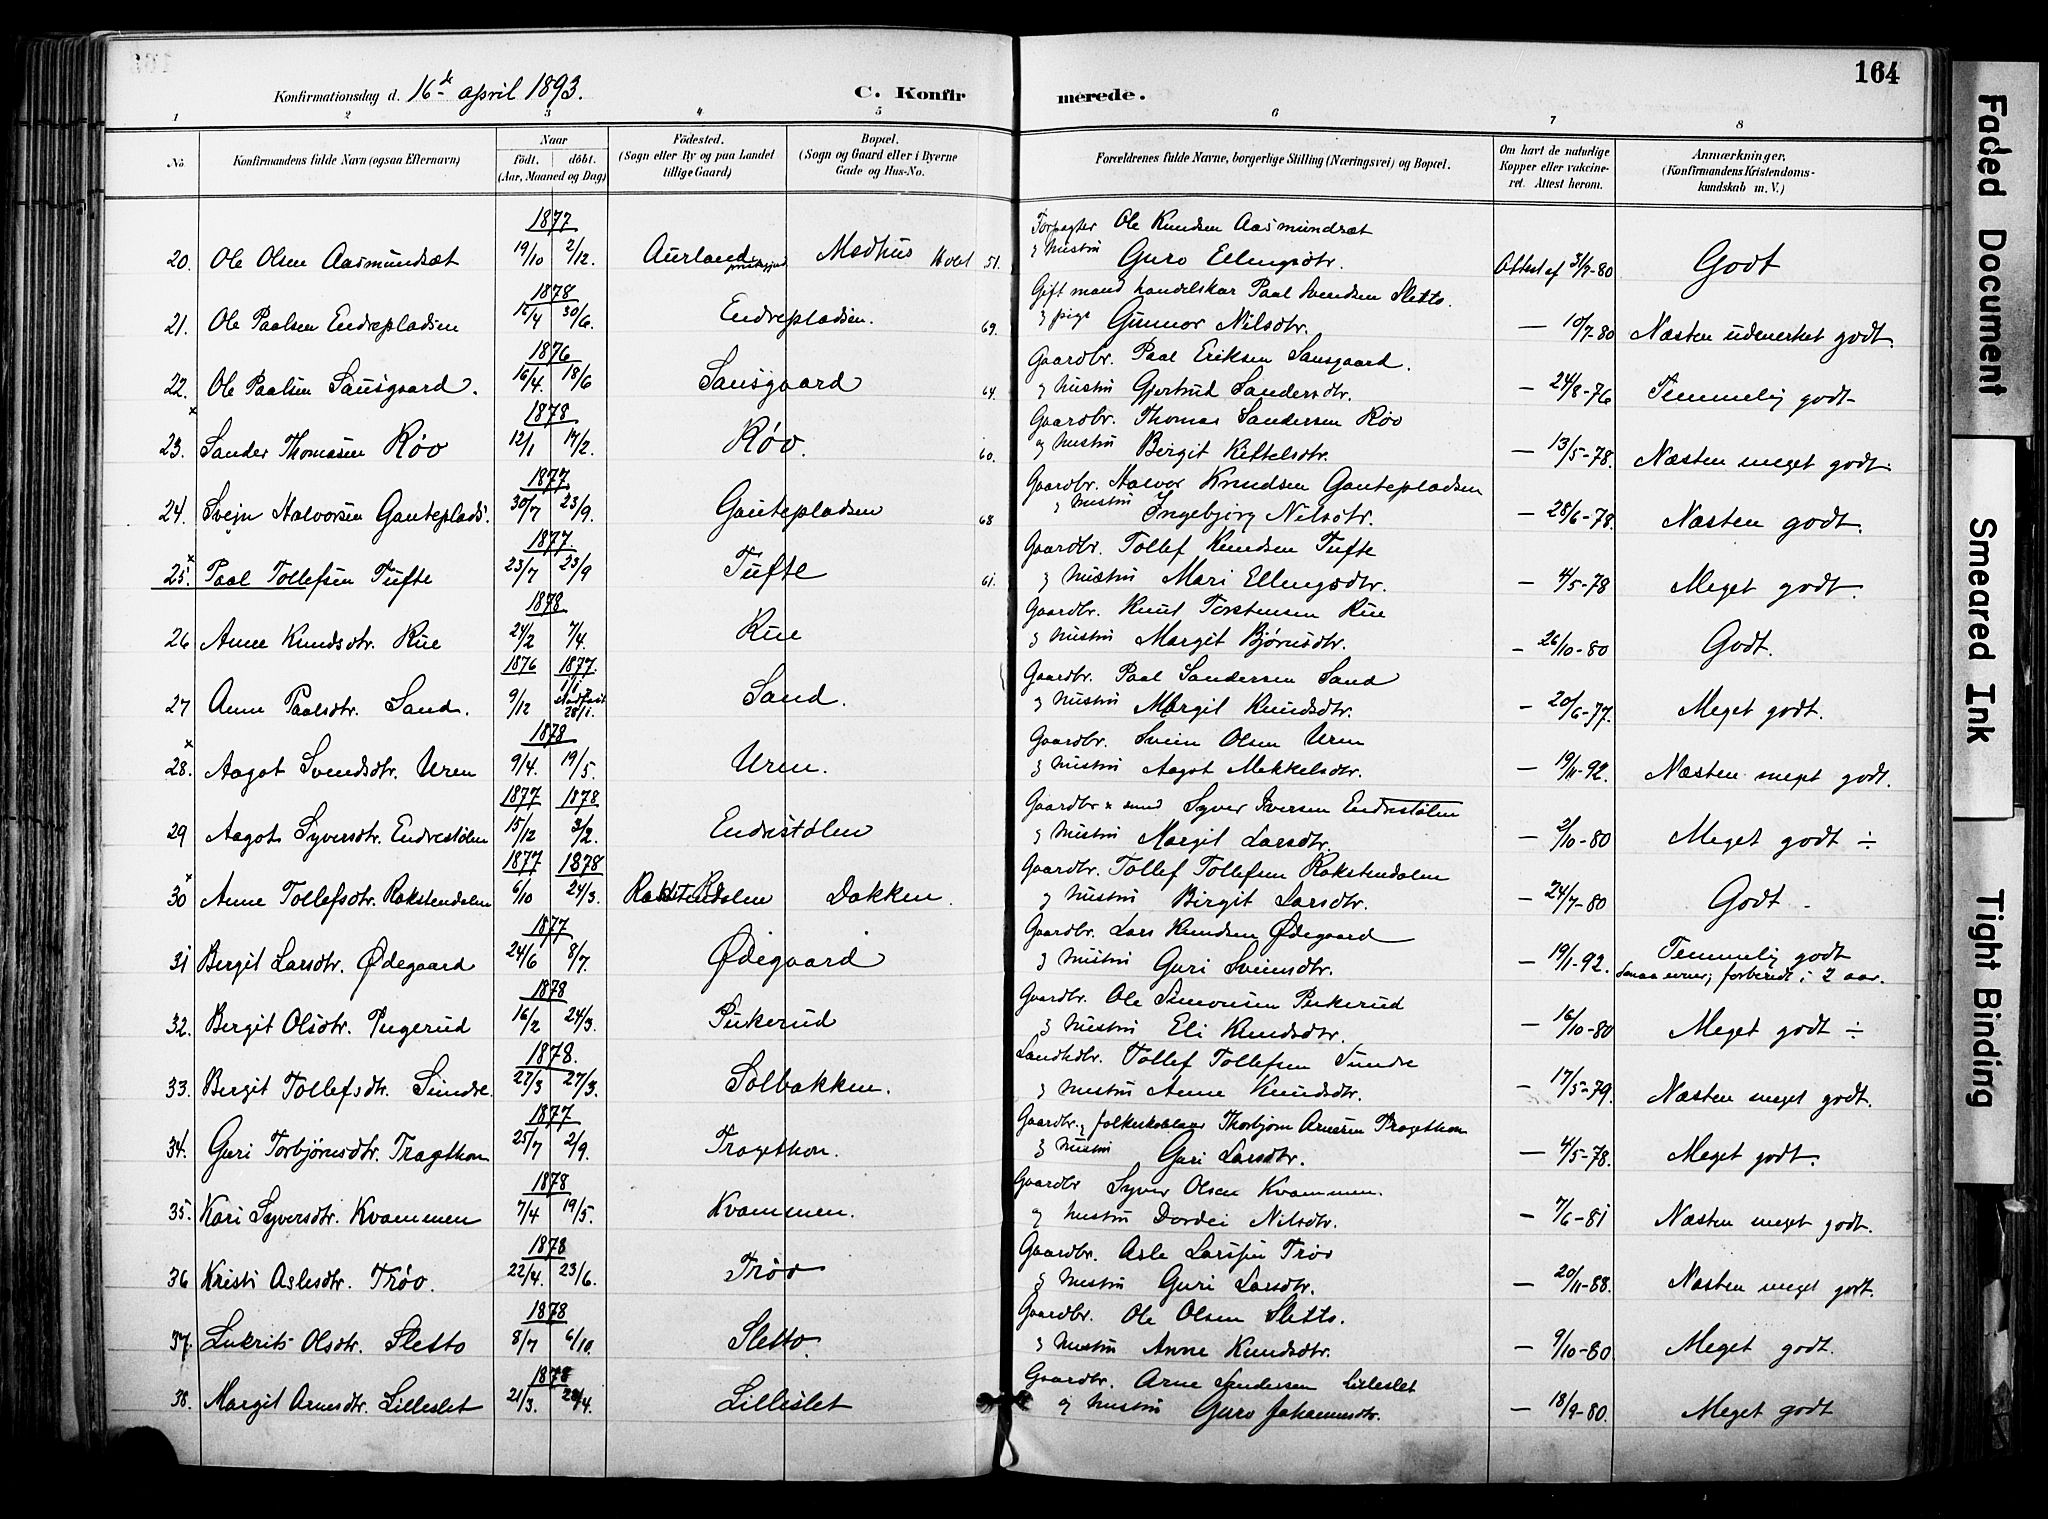 164
Konfirmationsdag d. 16de april 1893.
C. Konfirmerede.
1 2 3 4 5 6 7 8
No. Konfirmandens fulde Navn (ogsaa Efternavn) Naar født. døbt. (Aar, Maaned og Dag) Födested. (Sogn eller By og paa Landet tillige Gaard) Bopæl. (Sogn og Gaard eller i Byerne Gade og Hus-No. Forældrenes fulde Navne, borgerlige Stilling (Næringsvei) og Bopæl. Om havt de naturlige Kopper eller vakcineret. Attest herom. Anmærkninger. (Konfirmandens Kristendomskundskab m. V.)
1877 Ole Knudsen Aasmundsæt
20. Ole Olsen Aasmundsæt 19/10 2/12. Aurland Medhus Hvet 51. & Hustru Guro Ellingsdtr. Attest af 31/7-80 Godt
1878 Gift mand handelskar Paal Svendsen Sletto.
21. Ole Paalsen Endrepladsen 15/4 30/6. Endrepladsen. 69. & pige Gunnor Nilsdtr. — 10/7-80 Næsten udmerket godt.
1876 Gaardbr. Paal Eriksen Sausgaard.
22. Ole Paalsen Sausgaard. 16/4. 18/6 Sausgaard 64. & Hustru Gjertrud Sandersdtr. — 24/8-76 Temmelig godt
1878 Gaardbr. Thomas Sandersen Røo
x 23. Sander Thomasen Røo 12/1 17/2. Røo. 60. og Hustru Birgit Kittelsdtr. — 13/5-78. Næsten meget godt.
1877. Gaardbr. Halvor Knudsen Gautepladsen
24. Svejn Halvorsen Gauteplads. 30/7 23/9. Gautepladsen 68 & Hustru Ingebjørg Nilsdtr. — 28/6-78. Næsten godt.
1877. Gaardbr. Tollef Knudsen Tufte
x 25. Paal Tollefsen Tufte 23/7 23/9 Tufte 61. & Hustru Mari Ellingsdtr. — 4/5-78 Meget godt.
1878 Gaardbr. Knut Torstensen Rue
26 Anne Knudsdtr. Rue 24/2 7/4. Rue & Hustru Margit Bjørnsdtr. — 26/10-80 Godt.
1876 1877. Gaardbr. Paal Sandersen Sand
27 Anne Paalsdtr. Sand. 9/12 1/1 stadfæst 28/1. Sand. & Hustru Margit Knudsdtr. — 20/6-77. Meget godt.
1878 Gaardbr. Svein Olsen Uren
x 28. Aagot Svendsdtr. Uren 9/4. 19/5. Uren. & Hustru Aagot Mekkelsdtr. — 19/11-92. Næsten meget godt.
1877 1878 Gaardbr & smed Syver Iversen Endrestølen
29 Aagot Syversdtr. Endrestølen 15/12 3/2. Endrestølen & Hustru Margit Larsdtr. — 2/10-80 Meget godt ÷
1877 1878 Gaardbr. Tollef Tollefsen Rakstendalen
x 30 Anne Tollefsdtr. Rakstendalen 6/10 24/3. Rakstendalen Dokken. og Hustru Birgit Larsdtr. — 24/7-80 Godt
1877 Gaardbr. Lars Knudsen Ødegaard
31 Bergit Larsdtr. Ødegaard 24/6 8/7. Ødegaard & Hustru Guri Sveinsdtr. — 19/11-92. Temmelig godt
Smaa evner; forberedt i 2 aar.
1878 Gaardbr. Ole Simonsen Pukerud
32. Bergit Olsdtr. Pugerud 16/2 24/3. Pukerud & Hustru Eli Knudsdtr. — 16/10-80 Meget godt ÷
1878. Tollef Tollefsen Sundre
33. Bergit Tollefsdtr. Sundre. 22/3 27/3. Solbakken. & Hustru Anne Knudsdtr. — 17/5-79. Næsten meget godt.
1877 Gaardbr. & folkeskolelærer Thorbjørn Arnesen Tragethon
34. Guri Torbjørnsdtr. Tragethon 25/7 2/9. Tragethon. & Hustru Guri Larsdtr. — 4/5-78. Meget godt.
1878 Gaardbr Syver Olsen Kvammen.
35. Kari Syversdtr. Kvammen 7/4 19/5. Kvammen. og Hustru Dordei Nilsdtr. — 7/6-81 Næsten meget godt.
1878 Gaardbr. Asle Larsen Trøo
36 Kristi Aslesdtr. Trøo. 22/4. 23/6. Trøo & Hustru Guri Larsdtr. — 20/11-88. Næsten meget godt.
1878 Gaardbr. Ole Olsen Sletto.
37. Lukrits Olsdtr. Sletto 8/7 6/10. Sletto. & Hustru Anne Knudsdtr. — 9/10-80. Meget godt.
1878 Gaardbr. Arne Sandersen Lilleslet
38. Margit Arnesdtr. Lilleslet 21/3. 28/4. Lilleslet og Hustru Guro Johannesdtr. — 18/9-80. Meget godt
Faded Document
Smeared Ink
Tight Binding